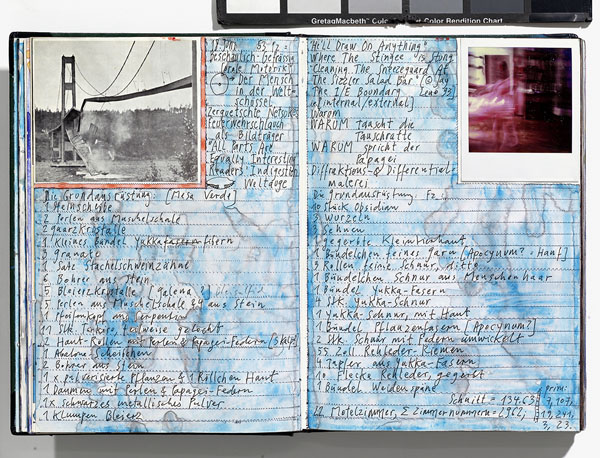 GretagMacbeth™ Color Rendition Chart
in der Welt-
schüssel
Zerquetschte Netzhs
Feuerwehrschlauch
als Bildträger
"All Parts Are
Equally Interesting
Readers' Indigesten
Weltfuge
Die Grundausrüstung: [Mesa Verde]
1 Steinscheibe
2 Perlen aus Muschelschale
2 Quarzkristalle
1 kleines Bündel Yukkafasern
3 Granate
1 Satz Stachelschweinzähne
6 Bohrer aus Stein
5 Bleierzkristalle [Galena]
5 Perlen aus Muschelschale & 4 aus Stein
1 Pfeifenkopf aus Serpentin
11 Stk. Türkise, teilweise gelocht
2 Haut-Rollen mit Perlen & Papagei-Federn
1 Abalone-Scheibchen
2 Bohrer aus Stein
1 x pulverisierte Pflanzen & 1 Röllchen Haut
1 Daumen mit Perlen & Papagei-Federn
1x schwarzes metallisches Pulver
1 Klumpen Bleierz
He'll Draw On Anything"
Where The Stingee is Stong
"Cleaning The Sneezeguard At
The Sizzler Salad Bar"
The I/E Boundary
[internal/external]
Warum
WARUM tauscht die
Tauschratte
WARUM spricht der
Papagei
Diffraktions- & Differential-
malerei
Die Grundausrüstung
Stück Obsidian
Wurzeln
Sehnen
gegerbte Kleintierhaut
1 Bündelchen feines Garn [Apocynum? + Haut]
3 Rollen feine Schnur, dito
1 Bündelchen Schnur aus Menschenhaar
1 Bündel Yukka-Fasern
4 Stk. Yukka-Schnur
1 Yukka-Schnur, mit Haut
1 Bündel Pflanzenfasern [Apocynum?]
2 Stk. Schnur mit Federn umwickelt
55 Zoll Rehleder-Riemen
4 Tupfer aus Yukka-Fasern
Flecke Rehleder, gegerbt
1 Bündel Weidenspäne
Schnitt = 134.63
22 Motelzimmer, Σ Zimmernummern = 2962,
prim:
7, 107,
19, 241,
3, 23.